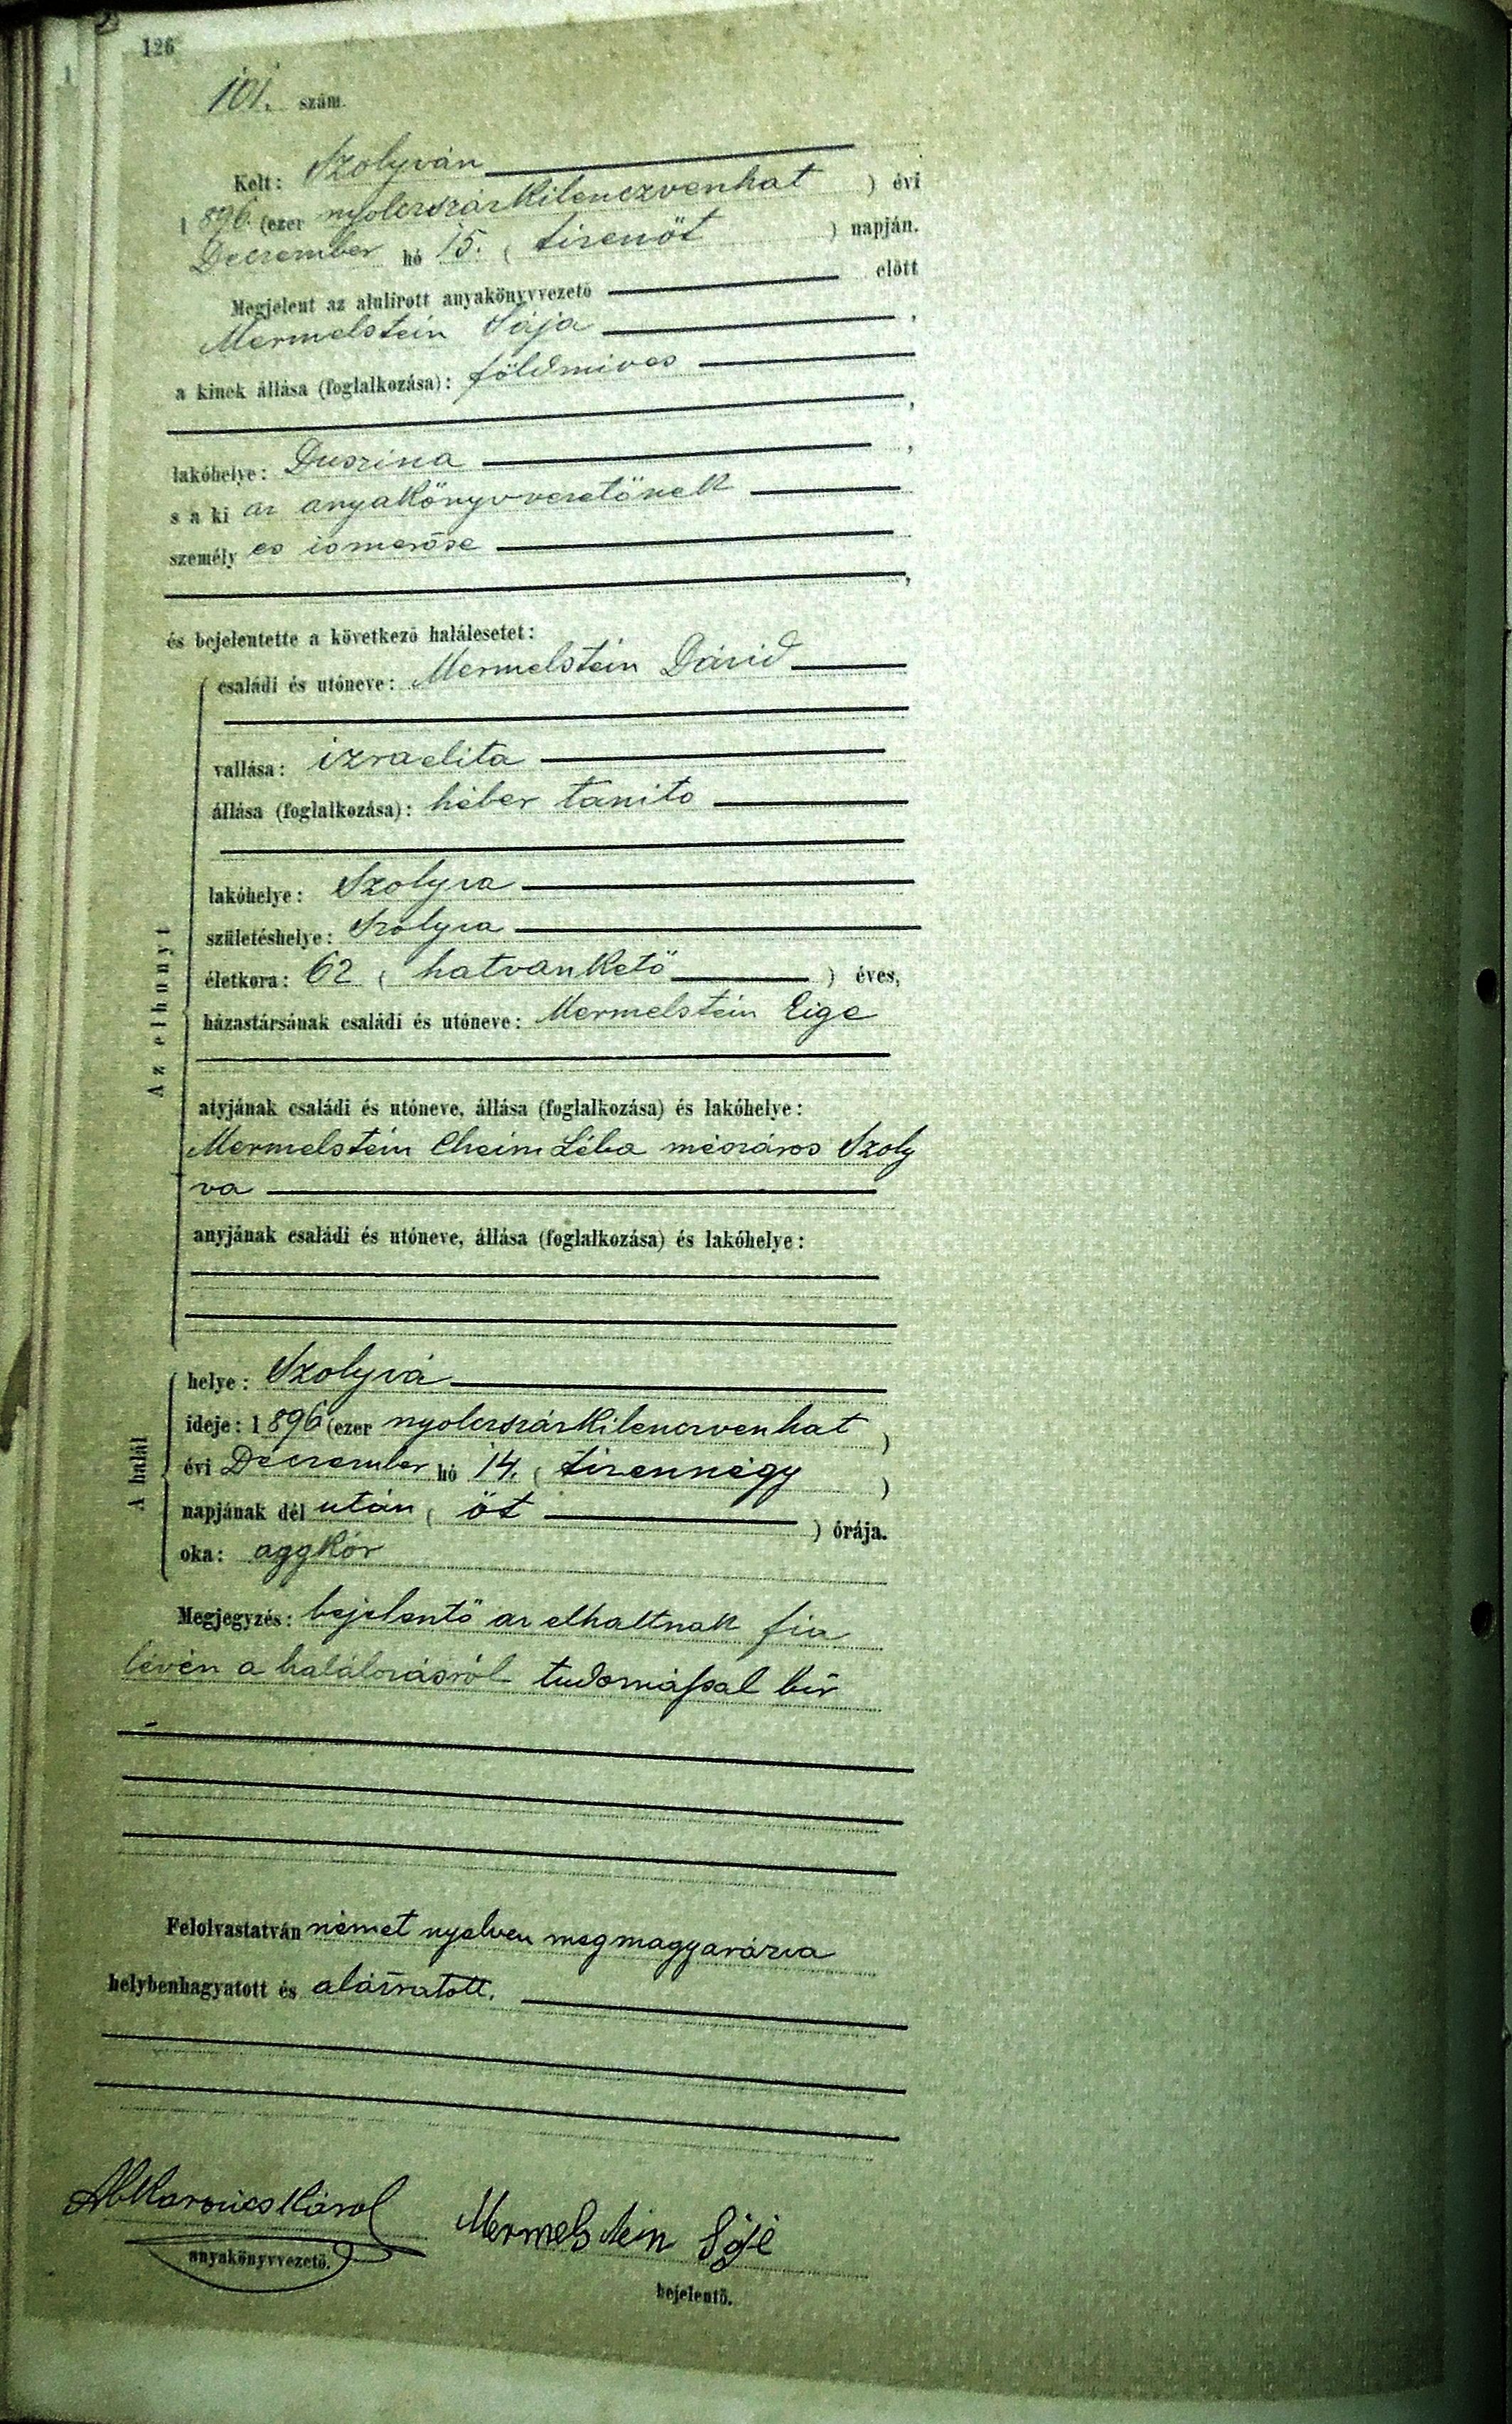 126
101. szám.
Kelt: Szolyván
1896. (ezer nyolczszázkilenczvenhat ) évi
Deczember hó 15. ( tizenöt ) napján.
Megjelent az alulírott anyakönyvvezető előtt
Mermelstein Sája ,
a kinek állása (foglalkozása): földmives
,
lakóhelye: Duszina ,
s a ki az anyakönyvvezetőnek
személy es ismerőse
,
és bejelentette a következő halálesetet:
Az elhunyt
családi és utóneve: Mermelstein Dávid
vallása: izraelita
állása (foglalkozása): héber tanito
lakóhelye: Szolyva
születéshelye: Szolyva
életkora: 62 ( hatvankető ) éves,
házastársának családi és utóneve: Mermelstein Eige
atyjának családi és utóneve, állása (foglalkozása) és lakóhelye:
Mermelstein Cheim Léba mészáros Szoly
va
anyjának családi és utóneve, állása (foglalkozása) és lakóhelye:
A halál
helye: Szolyvá
ideje: 1896 (ezer nyolczszázkilenczvenhat )
évi Deczember hó 14. ( tizennégy )
napjának dél után ( öt ) órája.
oka: aggkór
Megjegyzés: bejelentő az elhaltnak fia
lévén a halálozásról tudomással bír
Felolvastatván német nyelven megmagyarázva
helybenhagyatott és aláíratott.
Károl Mermelstein Sájé
anyakönyvvezető.
bejelentő.